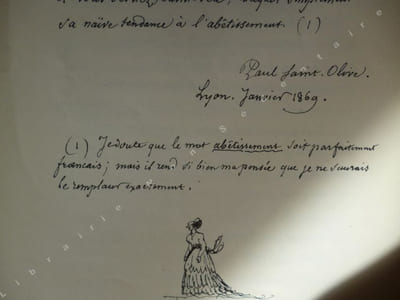 sa naïve tendance à l'abêtissement. (1)
Paul Saint-Olive.
Lyon. Janvier 1869.
(1) Je doute que le mot abêtissement soit parfaitement
français; mais il rend si bien ma pensée que je ne saurais
le remplacer exactement.